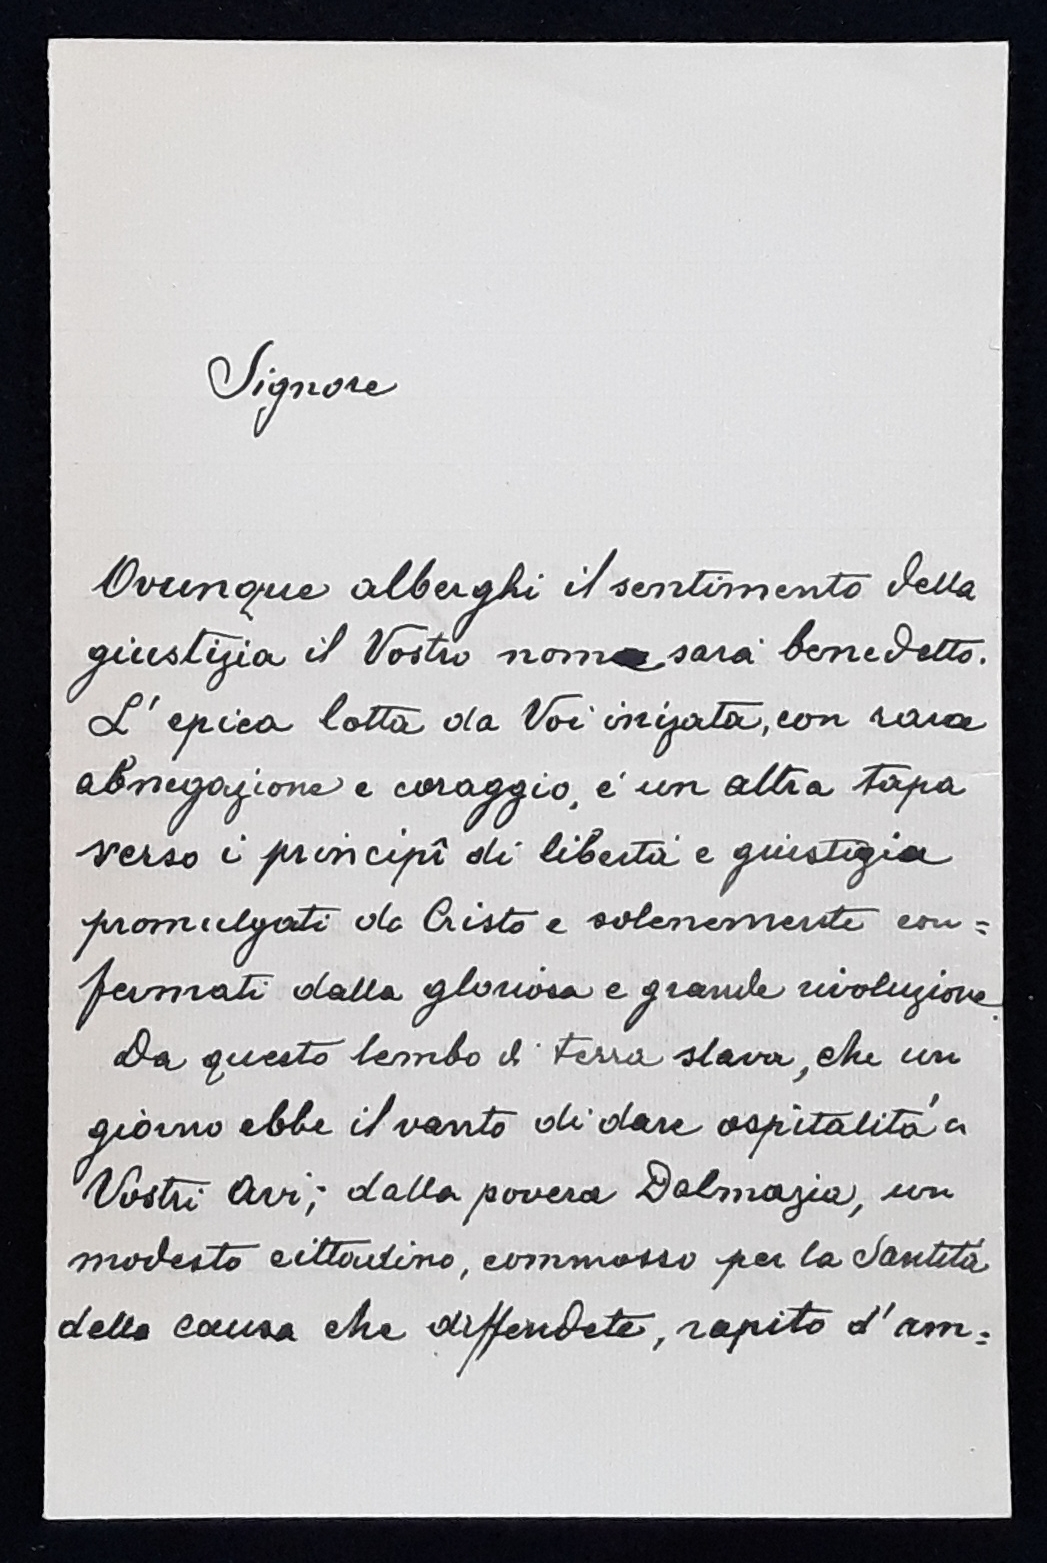 Signore
Ovunque alberghi il sentimento della
giustizia il Vostro nome sará benedetto.
L'epica lotta da Voi inizata, con rara
abnegazione e coraggio, é un altra tapa
verso i principî di libertá e giustizia
promulgati da Cristo e solenemente con=
fermati dalla gloriosa e grande rivoluzione.
Da questo lembo di terra slava, che un
giorno ebbe il vanto di dare ospitalitá a
Vostri Avi; dalla povera Dalmazia, un
modesto cittadino, commosso per la Santitá
della causa che diffendete, rapito d'am=